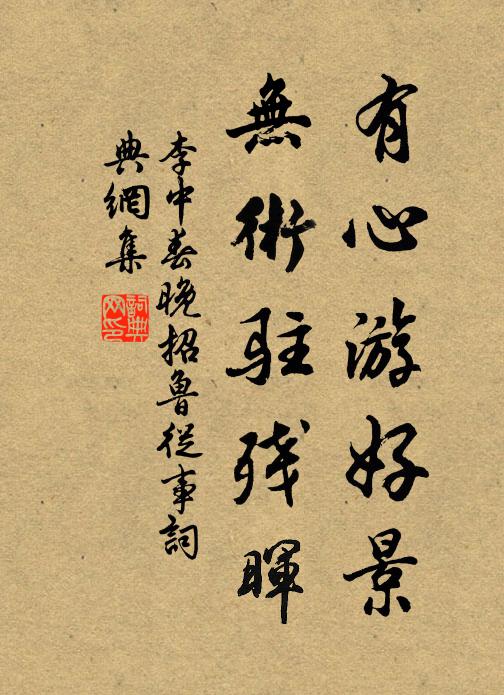 有心游好景
無術駐殘暉
李中春晚招魯從事詞
典網集
詞典
网印